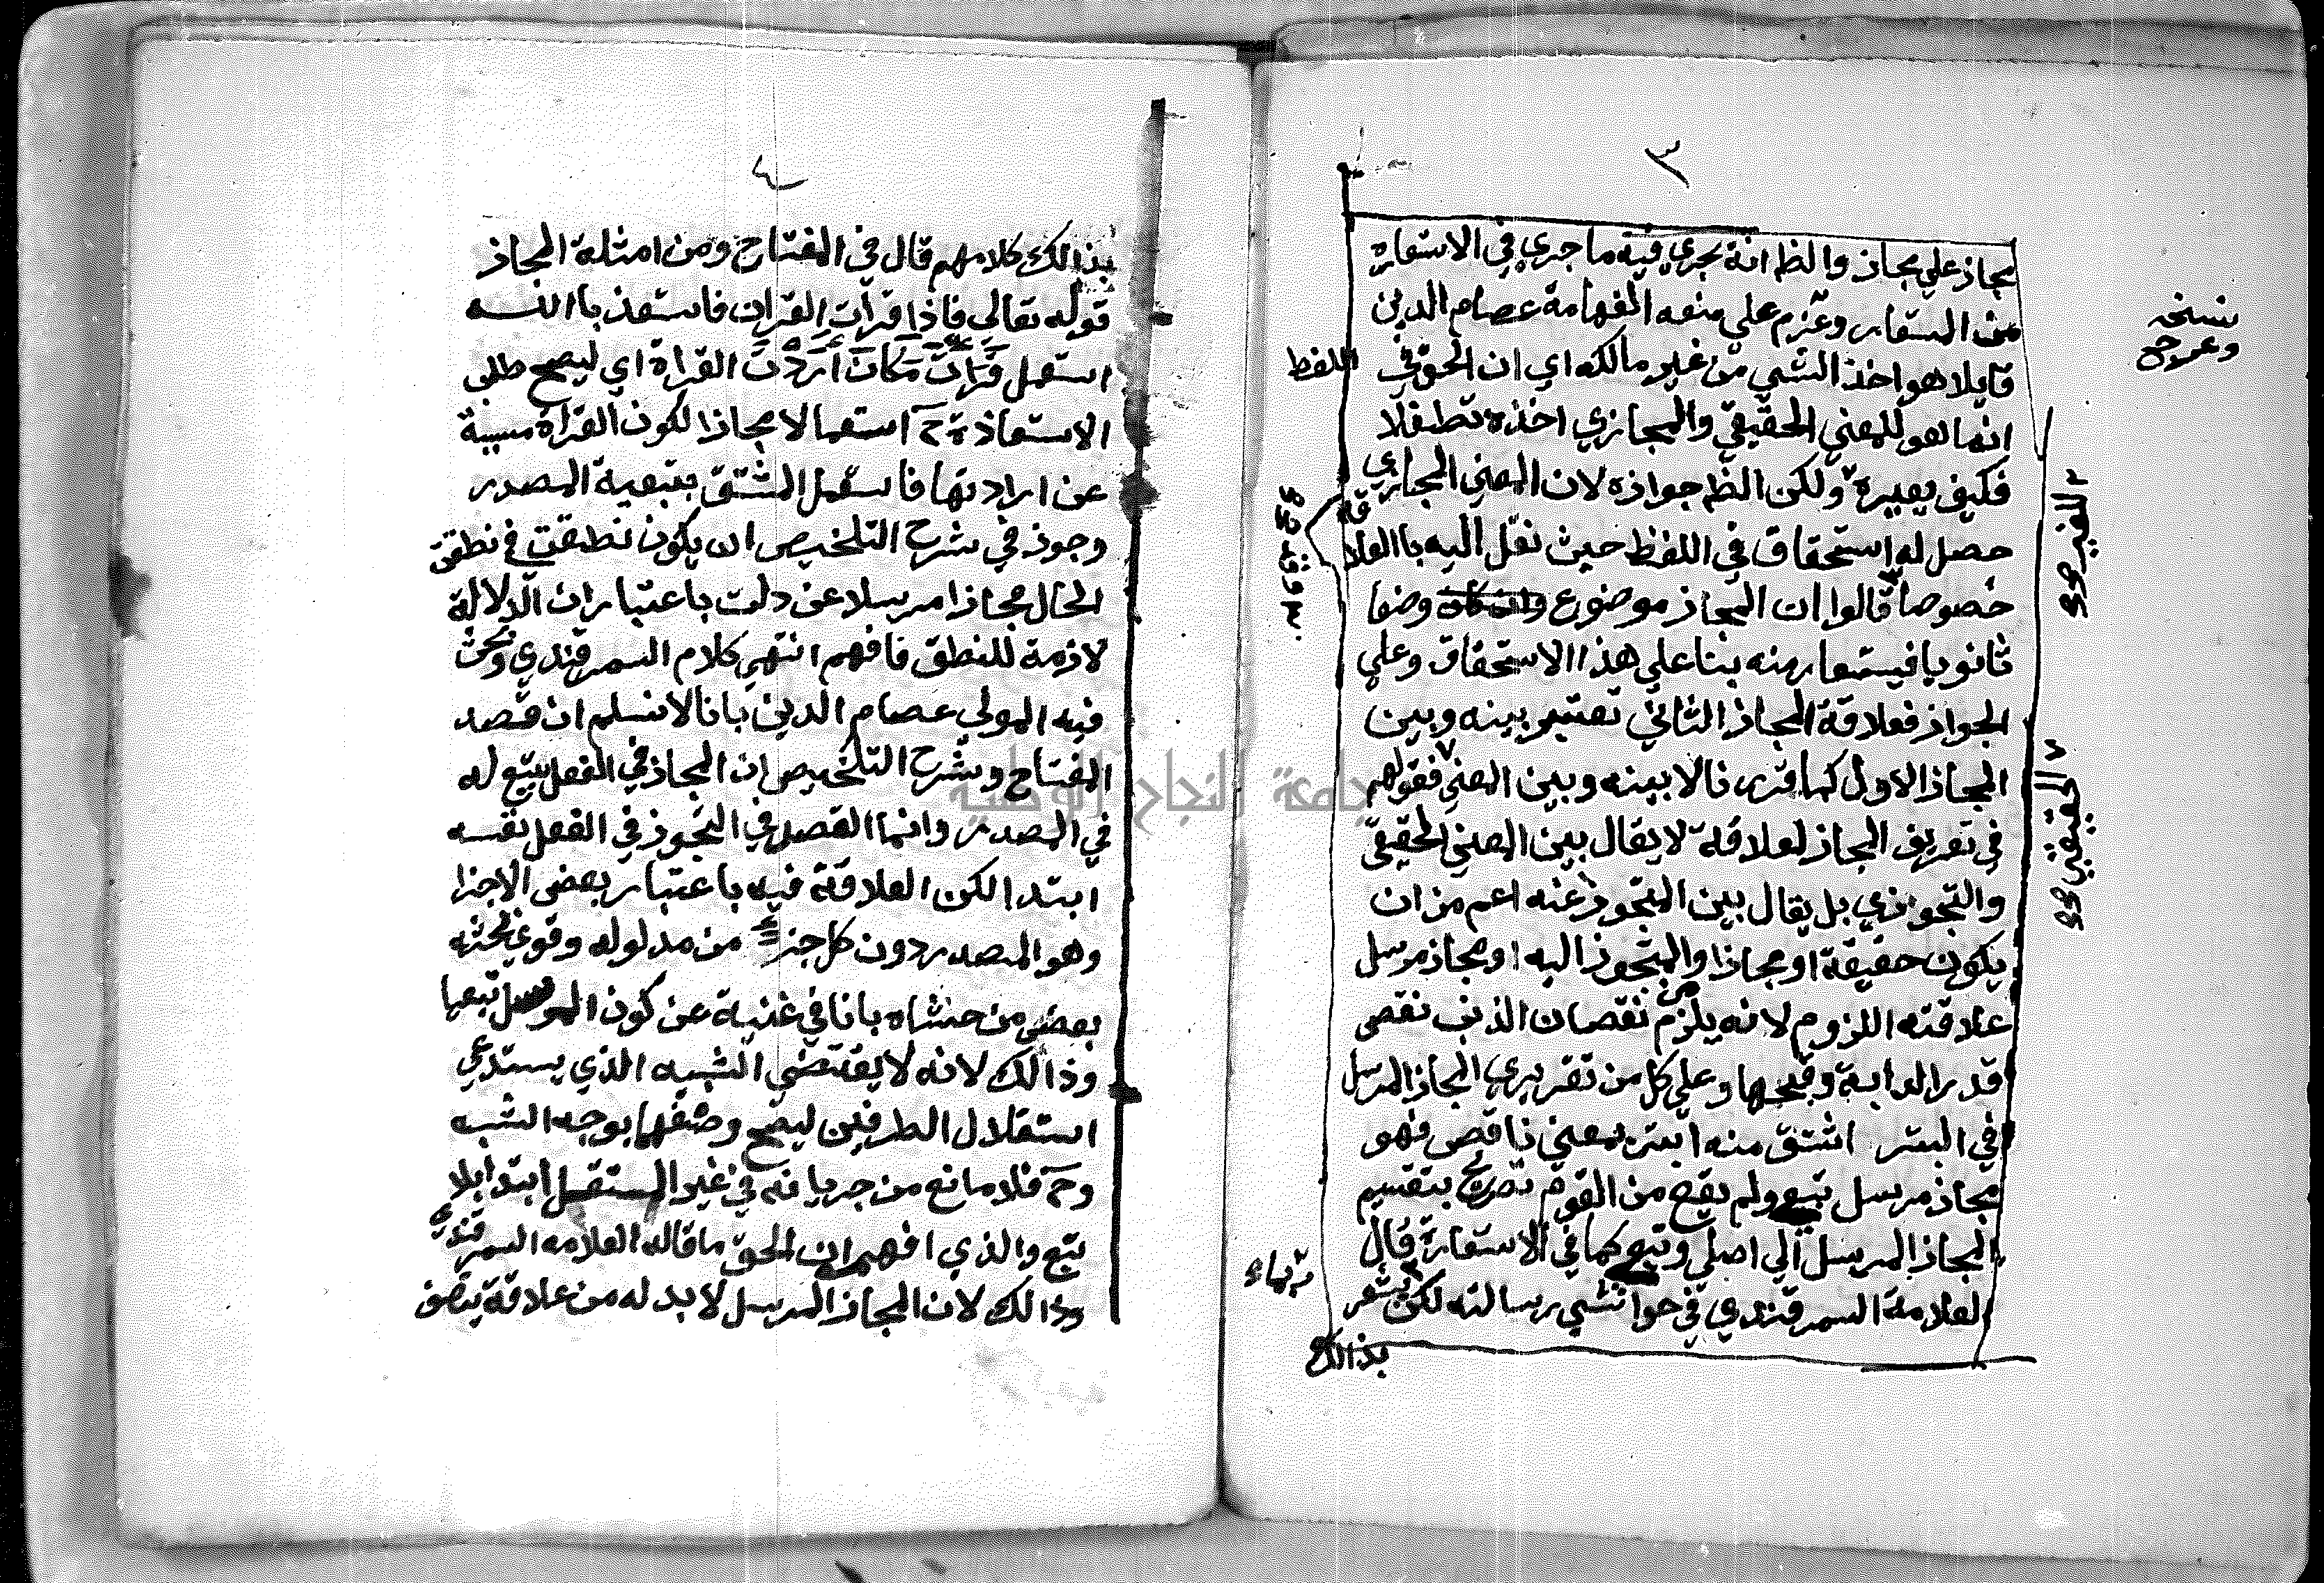 ٣
مجاز علي مجاز والظ انه يجري فيه ما جري في الاستعاره
من المستعار وعزم علي منعه الفهامة عصام الدين
قايلا هو اخذ الشي من غير مالكه اي ان الحق في اللفظ
انما هو للمعني الحقيقي والمجازي اخذه تطفلا
فكيف يعيره ولكن الظم جوازه لان المعني المجازي
حصل له استحقاق في اللفظ حيث نقل اليه باالعلاقة
خصوصا قالوا ان المجاز موضوع وضعا
ثانويا فيستعار منه بنا علي هذا الاستحقاق وعلي
الجواز فعلاقة المجاز الثاني تعتبر بينه وبين
المجاز الاول كما قررنا لا بينه وبين المعني فقولهم
في تعريف المجاز لعلاقة لا يقال بين المعني الحقيقي
والتجوزي بل يقال بين المتجوز عنه اعم من ان
يكون حقيقة او مجازا والمتجوز اليه او مجاز مرسل
علاقته اللزوم لانه يلزم من نقصان الذنب نقص
قدر الدابة وقبحها وعلي كل من تقريري المجاز المرسل
في البتر اشتق منه ابتر بمعني ناقص فهو
مجاز مرسل تبعي ولم يقع من القوم تصريح بتقسيم
المجاز المرسل الي اصلي وتبعي كما في الاستعارة قال
العلامة السمرقندي في حواشي رسالته لكن يشعر
بذالك
نسخه
وعرج
الغير صح
الحقيقي صح
ربماء
٤
بذالك كلامهم قال في المفتاح ومن امثلة المجاز
قوله تعالي فاذا قرأت القران فاستعذ باالله
استعمل قرأت مكان أردت القراة اي ليصح طلب
الاستعاذة ح استعمالا مجازا لكون القراة مسببة
عن ارادتها فاستعمل المشتق بتبعية المصدر
وجوز في شرح التلخيص ان يكون نطقت في نطقت
الحال مجازا مرسلا عن دلت باعتبار ان الدلالة
لازمة للنطق فافهم انتهي كلام السمرقندي وبحث
فيه المولي عصام الدين بانا لا نسلم ان قصد
المفتاح وشرح التلخيص ان المجاز في الفعل يتبع له
في المصدر وانما القصد في التجوز في الفعل نفسه
ابتدا لكن العلاقة فيه باعتبار بعض الاجزا
وهو المصدر دون كل جزء من مدلوله وقوي بحثه
بعض من حشاه بانا في غنية عن كون المرسل تبعيا
وذالك لانه لا يقتضي التشبيه الذي يستدعي
استقلال الطرفين ليصح وصفهما بوجه الشبه
وح فلا مانع من جريانه في غير المستقل ابتدا بلا
تبع والذي افهم ان الحق ما قاله العلامه السمرقندي
وذالك لان المجاز المرسل لا بد له من علاقة يتصف
جامعة النجاح الوطنية